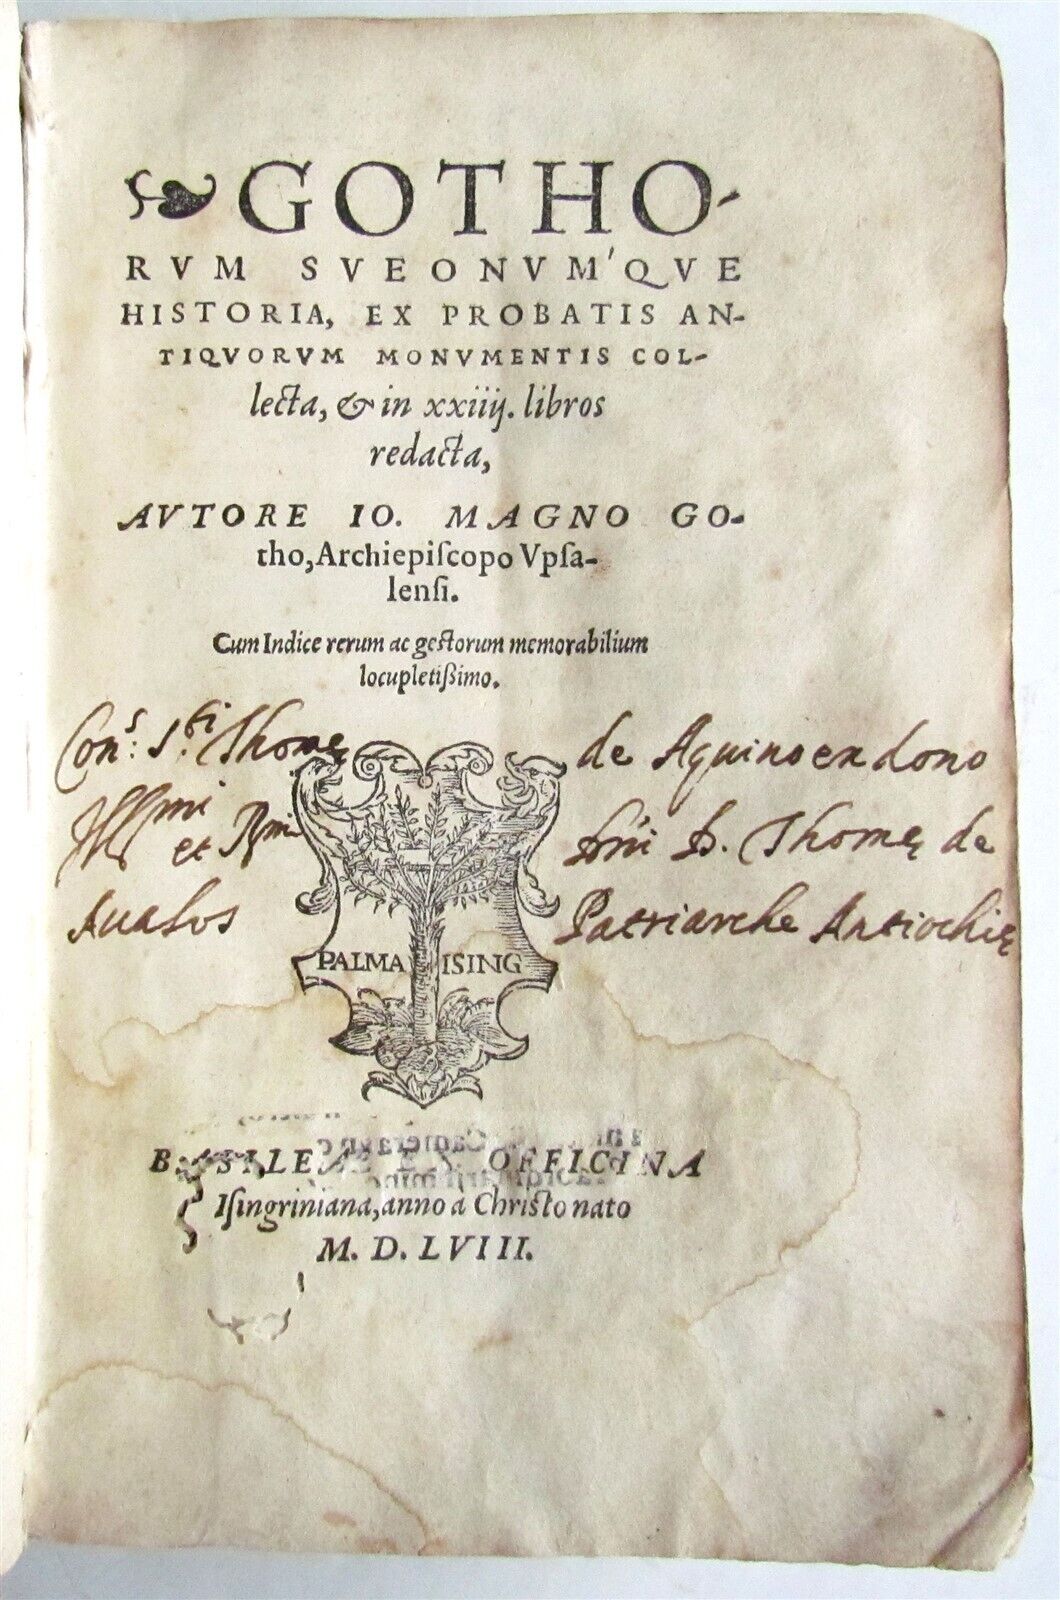 GOTHO-
RVM SVEONVM'QVE
HISTORIA, EX PROBATIS AN-
TIQVORVM MONVMENTIS COL-
lecta, & in xxiiij. libros
redacta,
AVTORE IO. MAGNO GO-
tho, Archiepiſcopo Vpſa-
lenſi.
Cum Indice rerum ac gestorum memorabilium
locupletißimo.
Conˢ: S.ᵗⁱ Thomę de Aquino ex dono
Illᵐⁱ et Rᵐⁱ Dñi D. Thomę de
Aualos Patriarche Antiochię
PALMA ISING
BASILEAE EX OFFICINA
Iſingriniana, anno a Christo nato
M. D. LVIII.